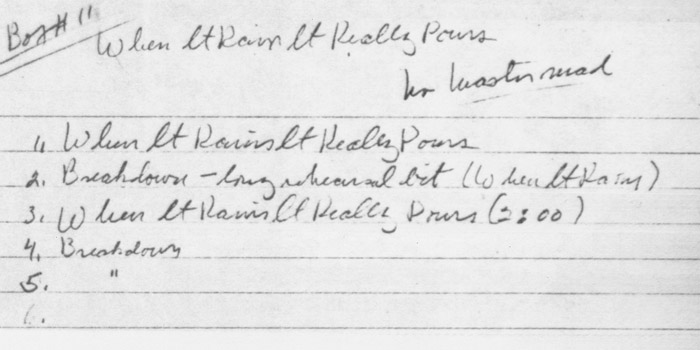 Box# 11
When It Rains It Really Pours
no master mead
1, When It Rains It Really Pours
2. Breakdown - long rehearsal bit (When It Rains)
3. When It Rains It Really Pours (2:00)
4. Breakdown
5. "
6.